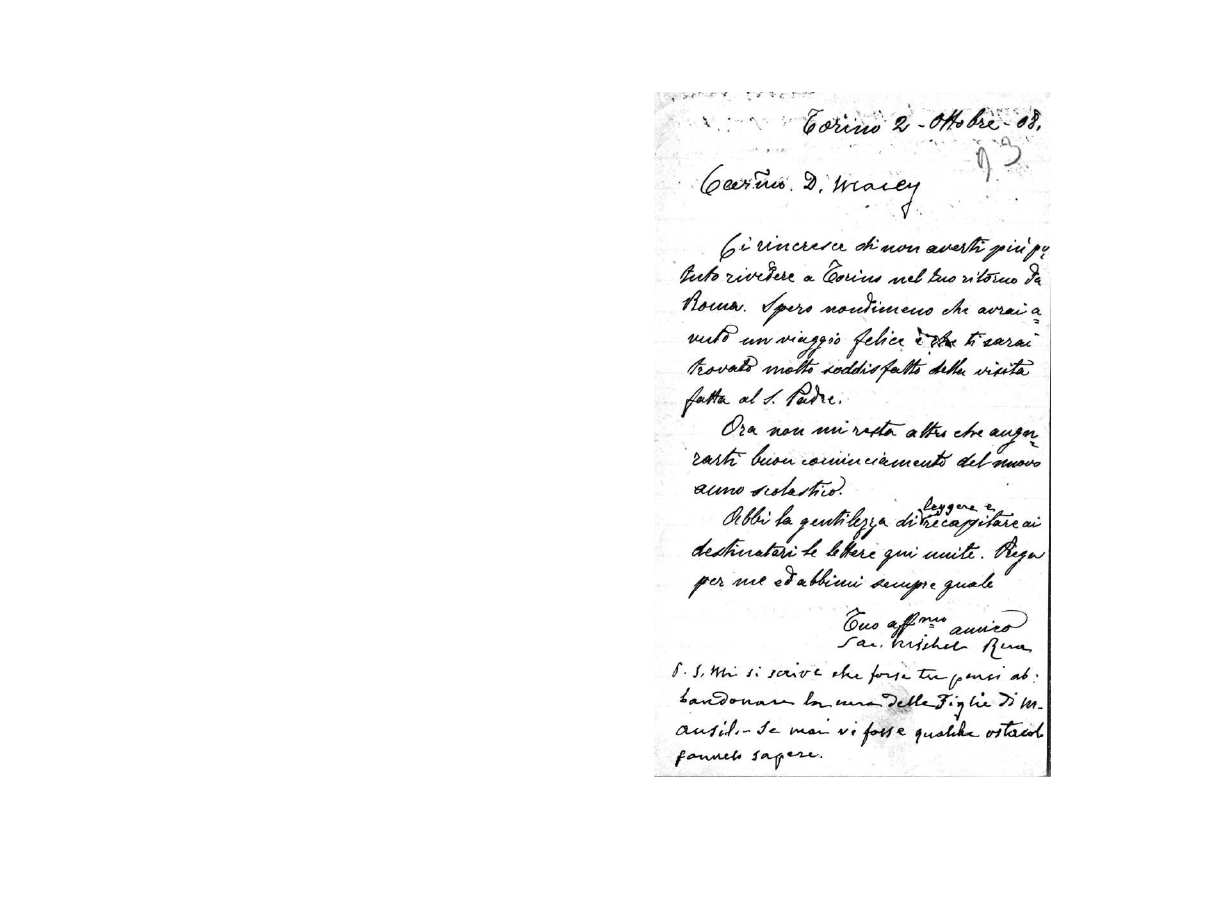 Torino 2 - Ottobre - 08.
93
Car͞mo. D. Macey
Ci rincresce di non averti più po=
tuto rivedere a Torino nel tuo ritorno da
Roma. Spero nondimeno che avrai a=
vuto un viaggio felice e che ti sarai
trovato molto soddisfatto della visita
fatta al S. Padre.
Ora non mi resta altro che augu=
rarti buon cominciamento del nuovo
anno scolastico.
leggere e
Abbi la gentilezza di recapitare ai
destinatari le lettere qui unite. Prega
per me ed abbimi sempre quale
Tuo affmo amico
Sac. Michele Rua
P. S. Mi si scrive che forse tu pensi ab:
bandonare la cura delle Figlie di M.
Ausil. - Se mai vi fosse qualche ostacolo
fammelo sapere.